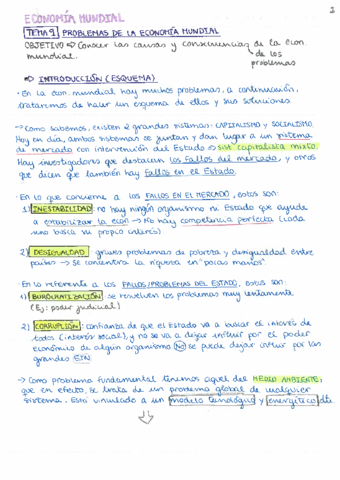 1
ECONOMÍA MUNDIAL
TEMA 9 PROBLEMAS DE LA ECONOMÍA MUNDIAL
OBJETIVO ⇒ Conocer las causas y consecuencias de la econ.
mundial. de los
problemas
⇒ INTRODUCCIÓN (ESQUEMA)
· En la econ. mundial hay muchos problemas, a continuación,
trataremos de hacer un esquema de ellos y sus soluciones
→ Como sabemos, existen 2 grandes sistemas: CAPITALISMO y SOCIALISMO.
Hoy en día, ambos sistemas se juntan y dan lugar a un sistema
de mercado con intervención del Estado ⇒ sist. capitalista mixto.
Hay investigadores que destacan los fallos del mercado, y otros
que dicen que también hay fallos en el Estado.
· En lo que concierne a los FALLOS EN EL MERCADO, estos son:
1) INESTABILIDAD: no hay ningún organismo ni Estado que ayude
a estabilizar la econ → No hay competencia perfecta (cada
uno busca su propio interés)
2) DESIGUALDAD: graves problemas de pobreza y desigualdad entre
países → Se concentra la riqueza en "pocas manos"
· En lo referente a los FALLOS/PROBLEMAS DEL ESTADO, estos son:
1) BUROCRATIZACIÓN: se resuelven los problemas muy lentamente
(Ej: poder judicial)
2) CORRUPCIÓN: confianza de que el Estado va a buscar el interés de
todos (interés social), y no se va a dejar influir por el poder
económico de algún organismo NO se puede dejar influir por las
grandes ETN.
→ Como problema fundamental tenemos aquel del MEDIO AMBIENTE;
que en efecto, se trata de un problema global de cualquier
sistema. Está vinculado a un modelo tecnológico y energético dte.